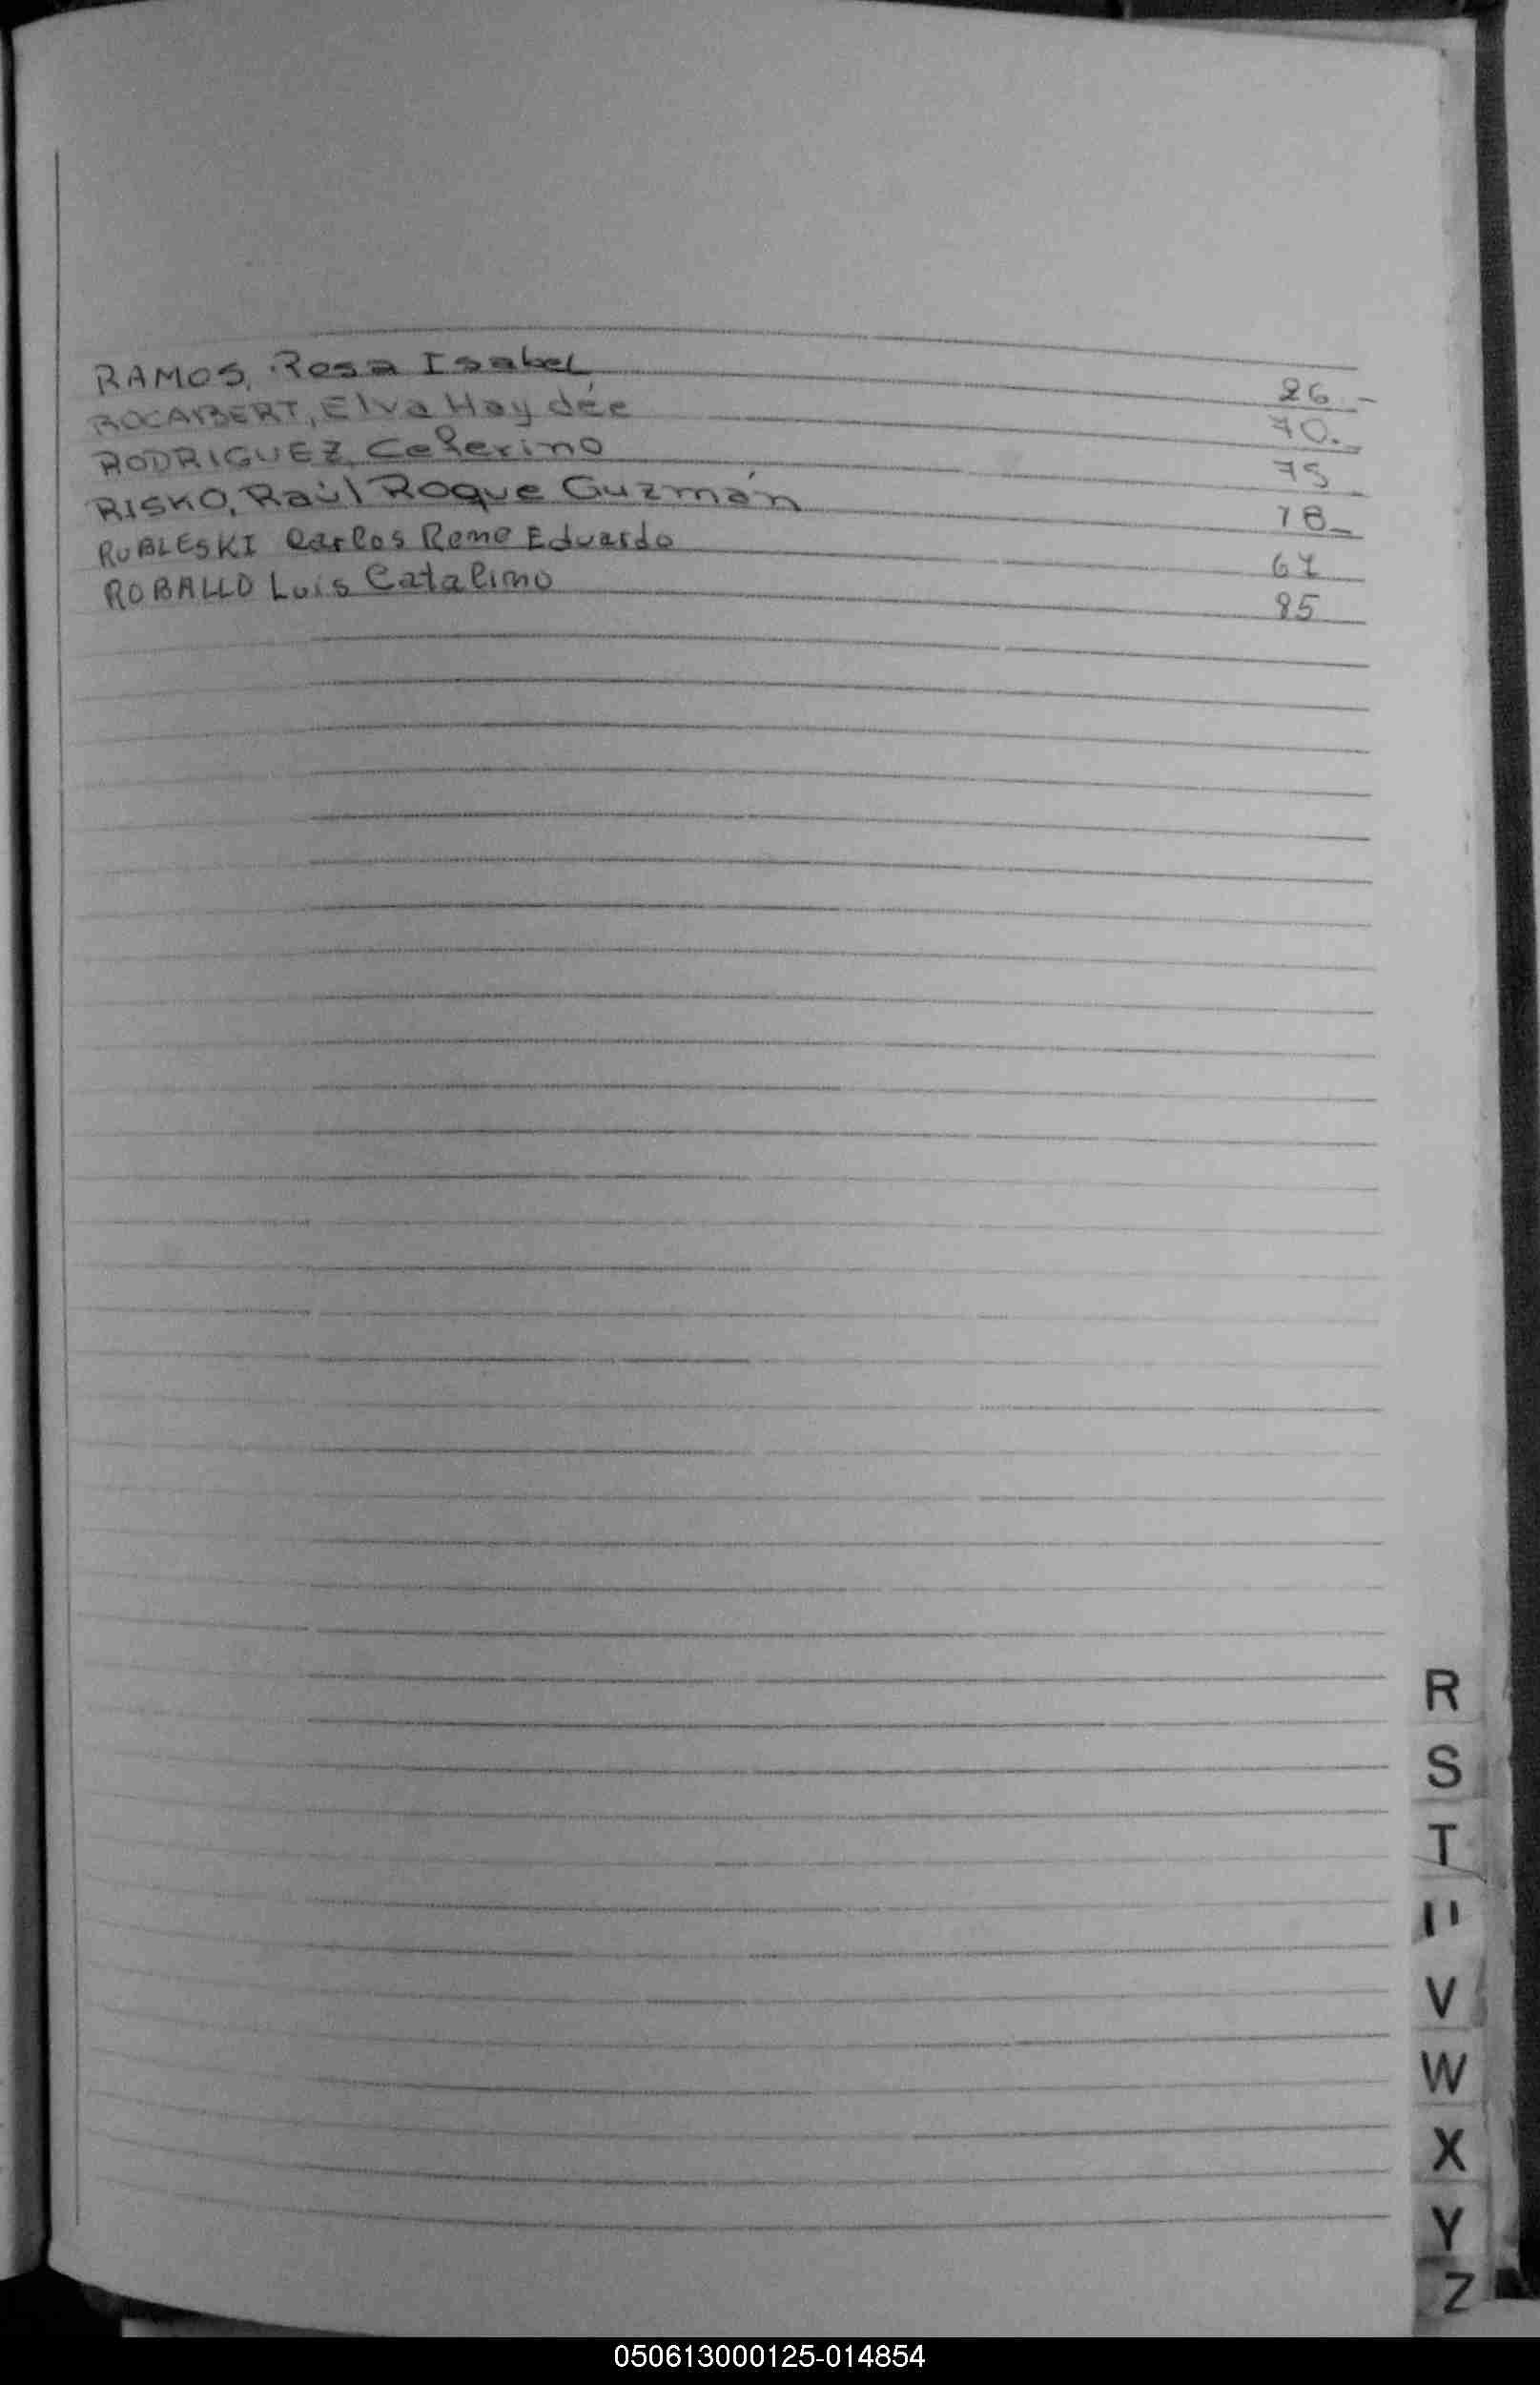 RAMOS, Rosa Isabel 26 -
ROCABERT, Elva Haydée 70.-
RODRIGUEZ, Ceferino 75 -
RISKO, Raúl Roque Guzmán 78 -
RUBLESKI Carlos Rene Eduardo
ROBALLO Luis Catalino 85
R
S
T
U
V
W
X
Y
Z
050613000125-014854